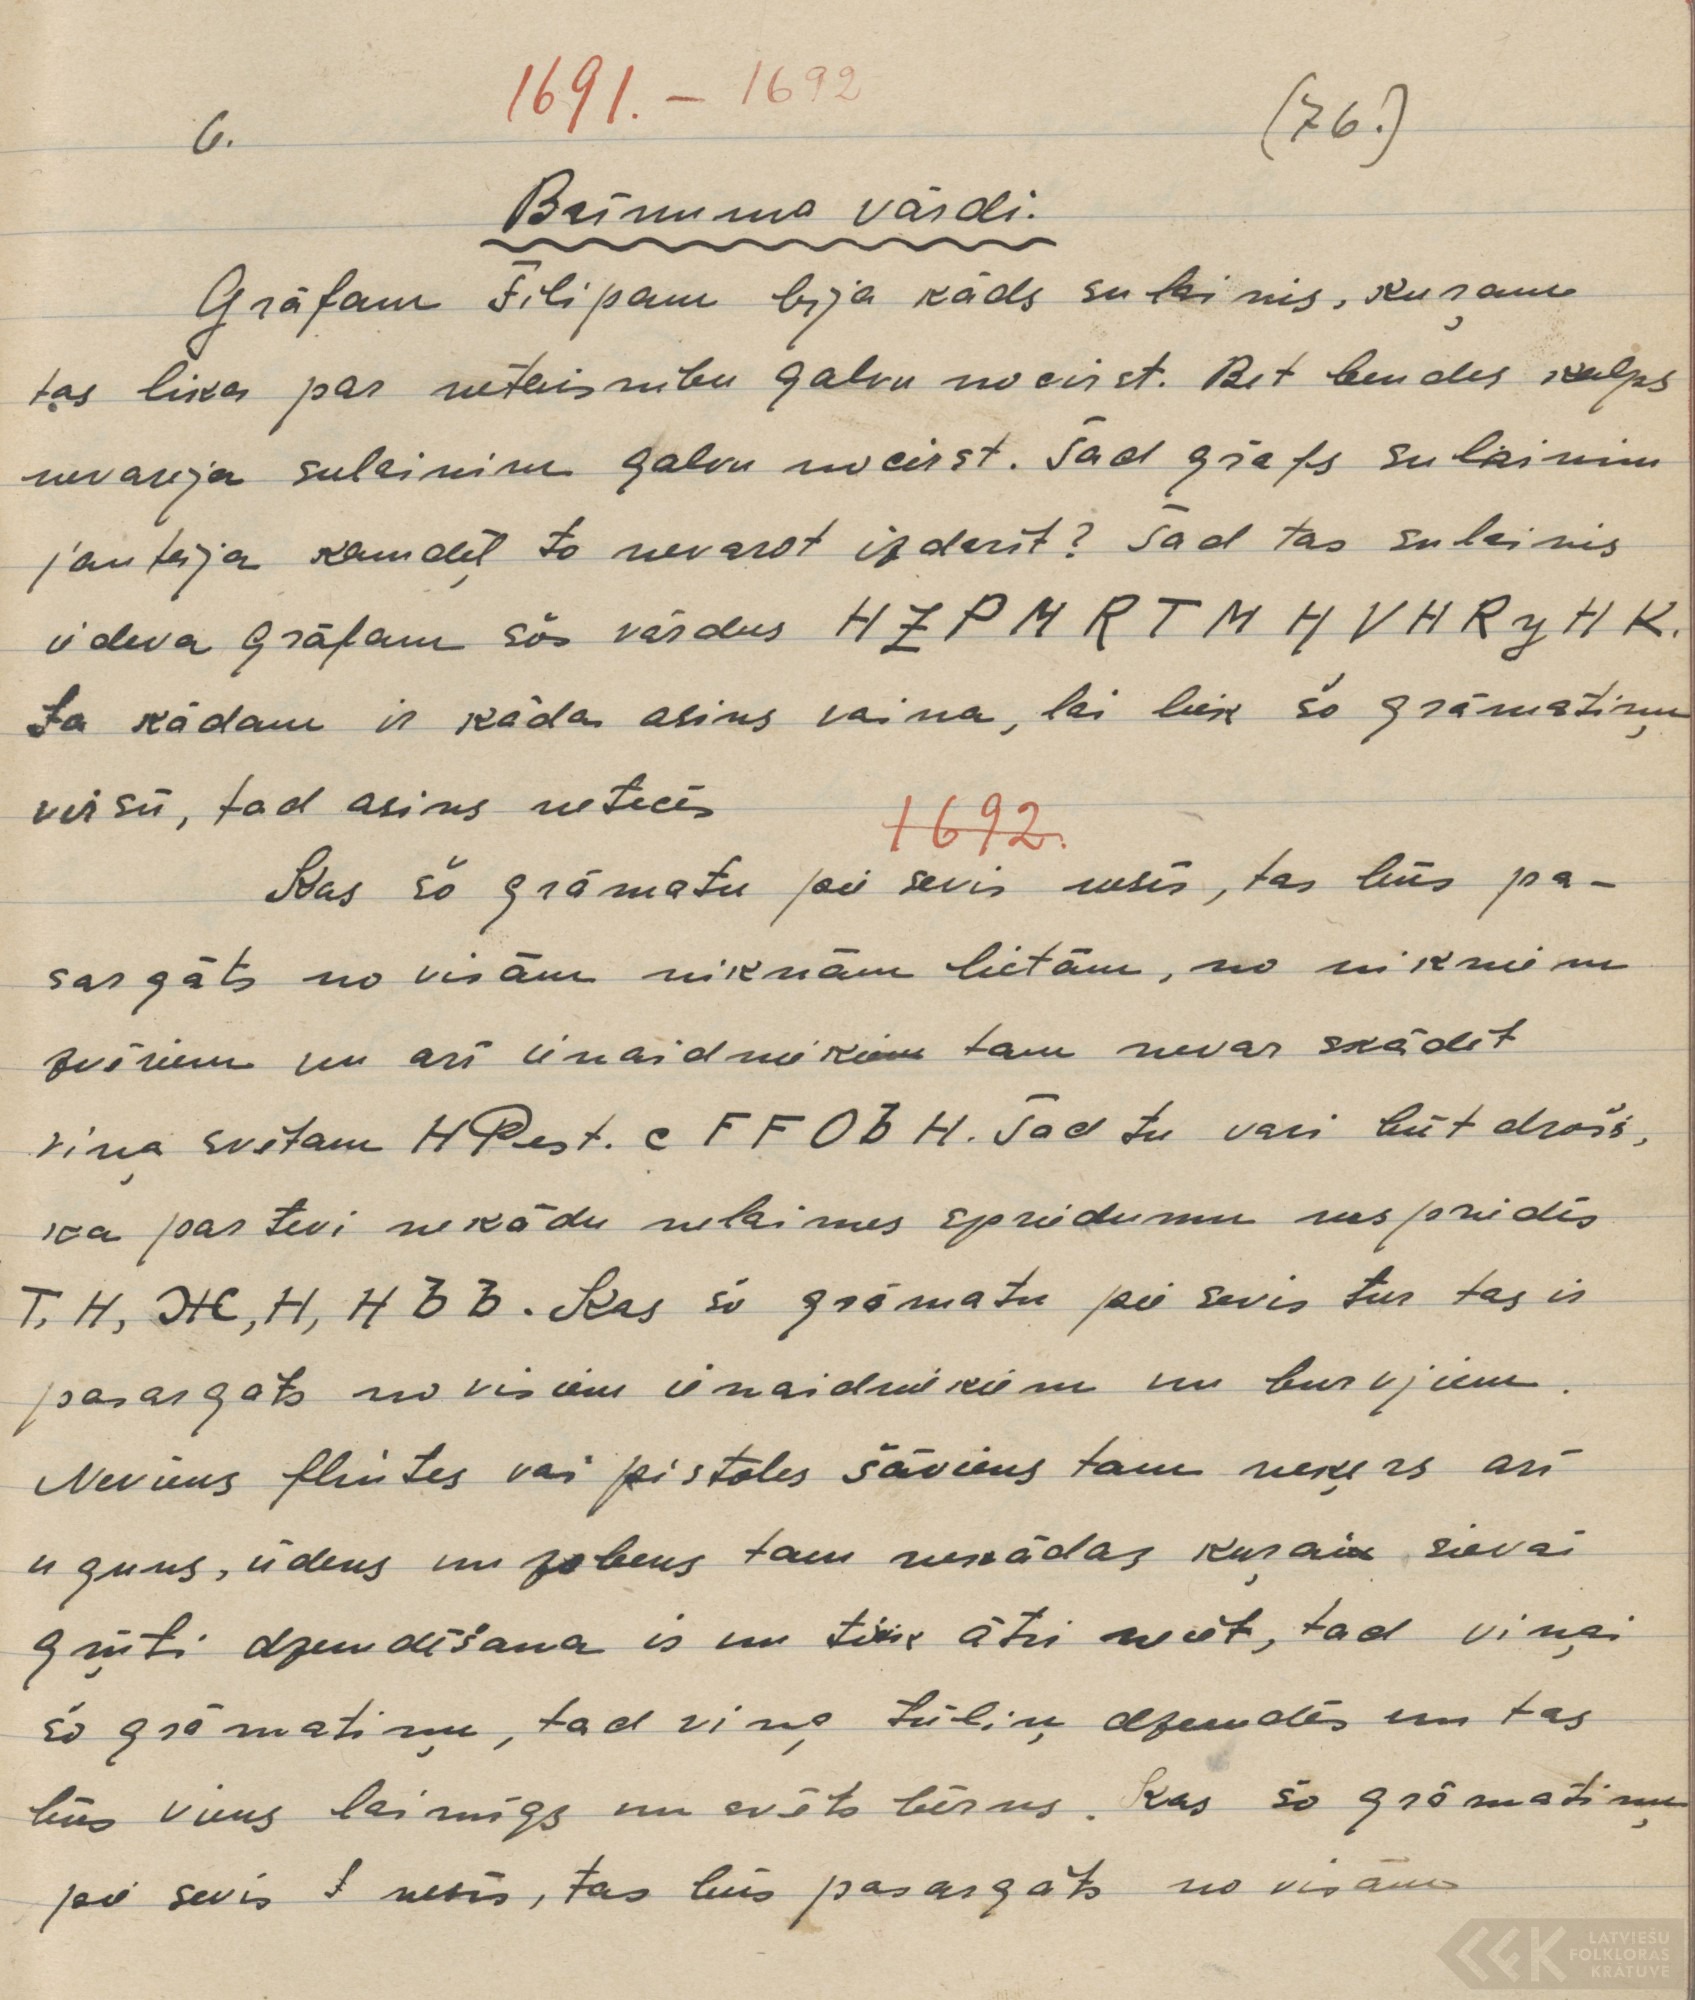 1691. - 1692
6.
(76.)
Brīnuma vārdi.
Grāfam Filipam bija kāds sulainis, kuŗam
tas lika par netaisnību galvu nocirst. Bet bendes kalps
nevarēja sulainim galvu nocirst. Tad grāfs sulainim
jautāja kamdēļ to nevarot izdarīt? Tad tas sulainis
ideva grāfam šos vārdus HZPMRTMHVHRyHK.
Ja kādam ir kāda asins vaina, lai liek šo grāmatiņu
virsū, tad asins netecēs
1692.
Kas šo grāmatu pie sevis nesīs, tas būs pa-
sargāts no visām niknām lietām, no nikniem
zvēriem un arī ienaidniekiem tam nevar skādēt
viņa svētam H Pest. c F F O Ѣ H. Tad tu vari būt drošs,
ka par tevi nekādu nelaimes spriedumu nespriedīs
T, H, Ж, H, H Ѣ Ѣ. Kas šo grāmatu pie sevis tur tas ir
pasargāts no visiem ienaidniekiem un burvjiem.
Neviens flintes vai pistoles šāviens tam neķers arī
uguns, ūdens un zobens tam nekādas kuŗai sievai
gŗūti dzemdēšana ir un tiek ātri tad viņai
šo grāmatiņu, tad viņa tūliņ dzemdēs un tas
būs viens laimīgs un svēts bērns. Kas šo grāmatiņu
pie sevis nesīs, tas būs pasargāts no visām
LATVIEŠU
FOLKLORAS
KRĀTUVE